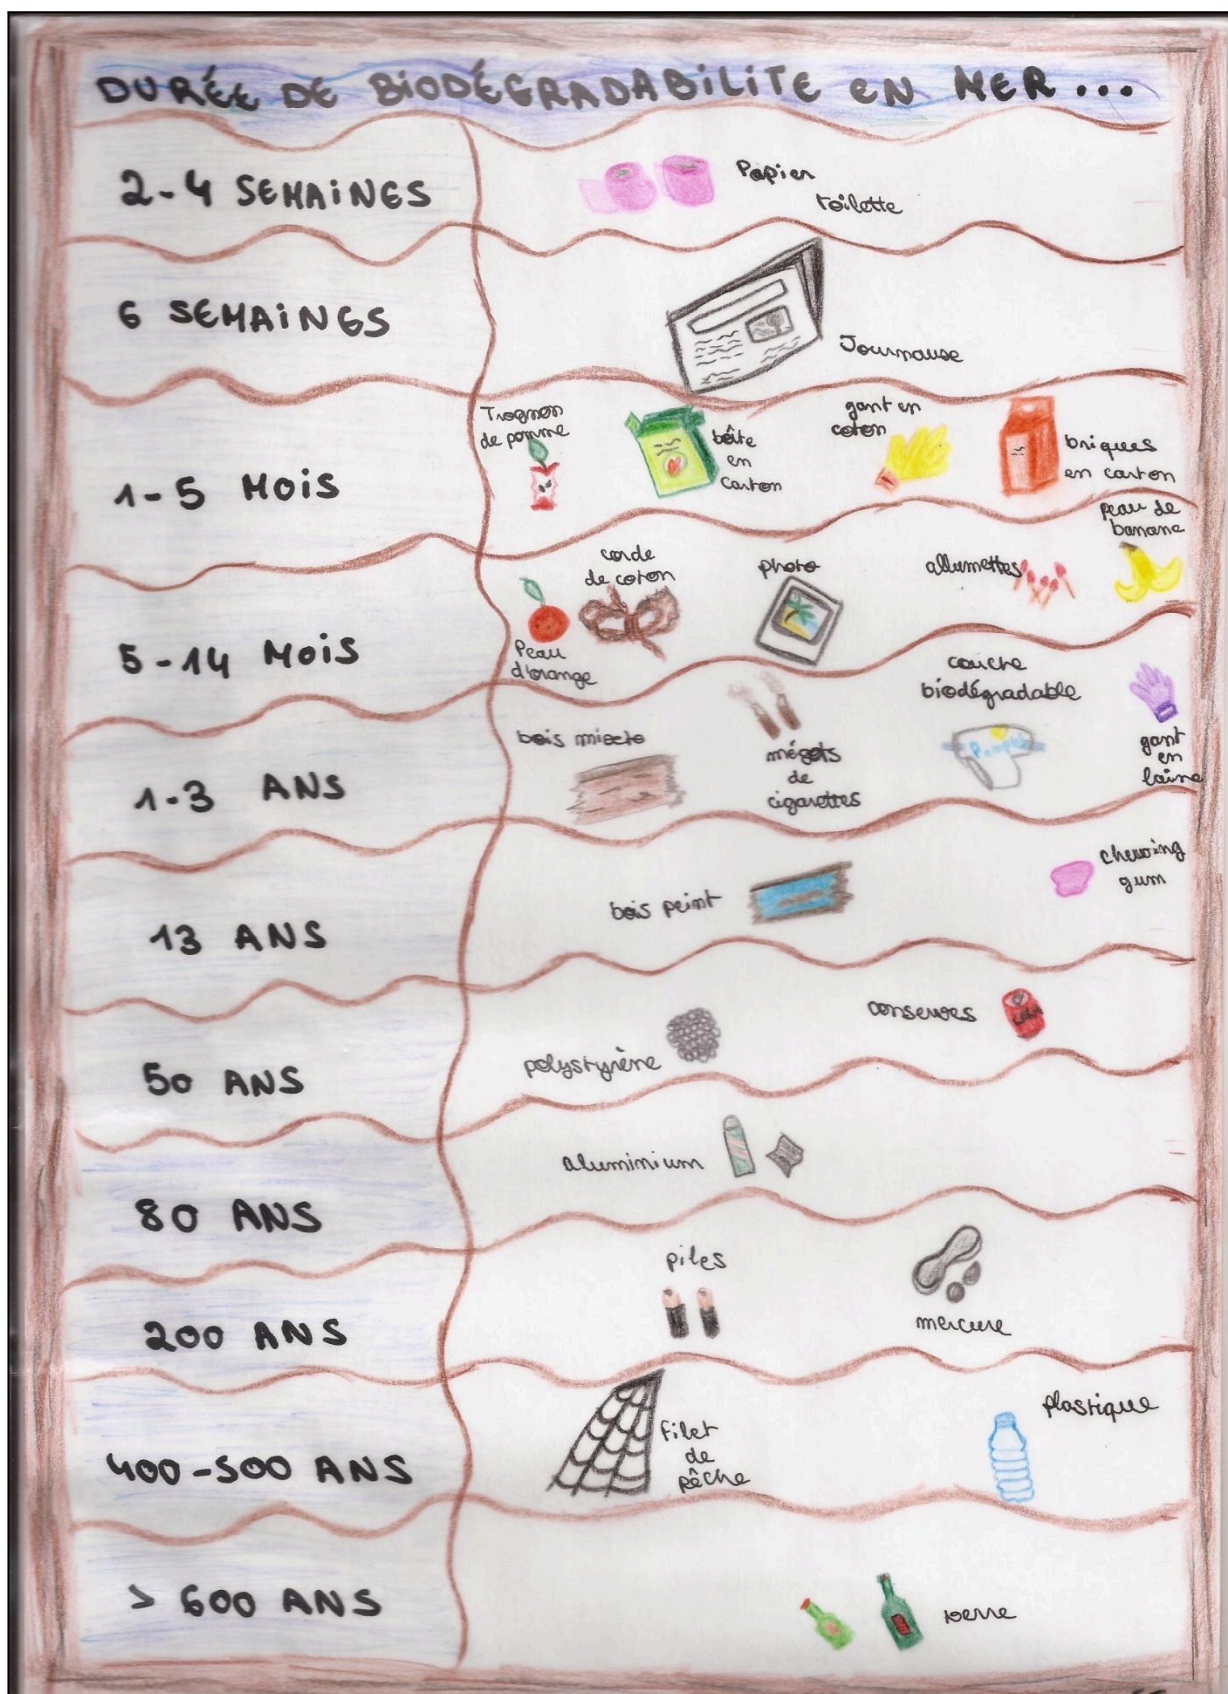 DURÉE DE BIODÉGRADABILITE EN MER...
2-4 SEMAINES
Papier
toilette
6 SEMAINES
Journaux
1-5 MOIS
Trognon
de pomme
boîte
en
carton
gant en
coton
briques
en carton
5-14 MOIS
Peau
d'orange
corde
de coton
photo
allumettes
peau de
banane
1-3 ANS
bois mixte
mégots
de
cigarettes
couche
biodégradable
gant
en
laine
13 ANS
bois peint
chewing
gum
50 ANS
polystyrène
conserves
80 ANS
aluminium
200 ANS
piles
mercure
400-500 ANS
filet
de
pêche
plastique
> 600 ANS
verre